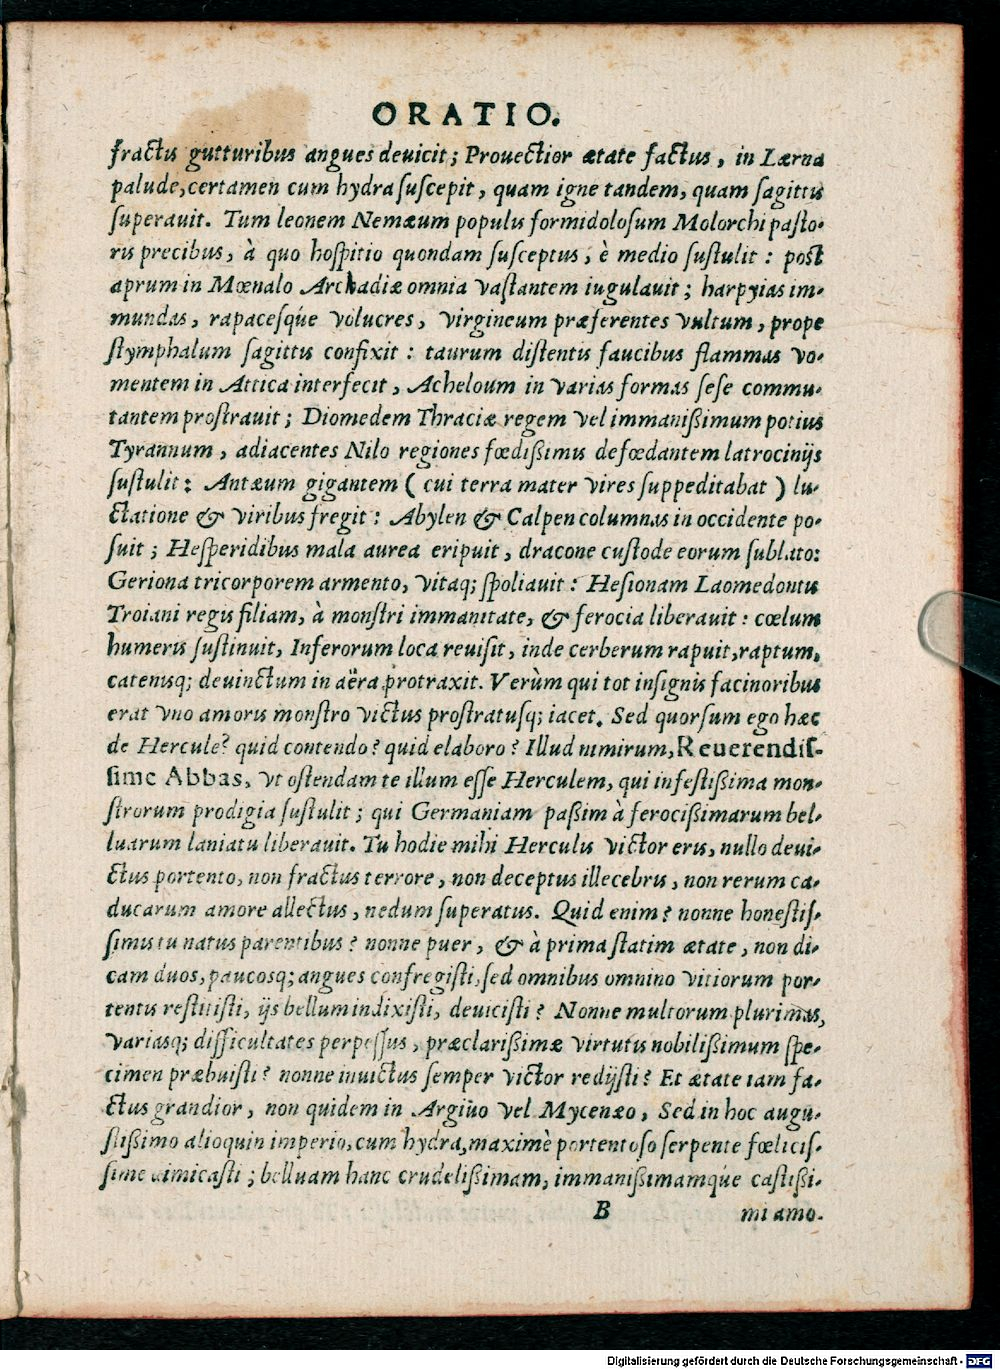 ORATIO.
fractis gutturibus angues deuicit; Prouectior ætate factus, in Lærna
palude, certamen cum hydra suscepit, quam igne tandem, quam sagittis
superauit. Tum leonem Nemæum populis formidolosum Molorchi pasto-
ris precibus, à quo hospitio quondam susceptus, è medio sustulit: post
aprum in Mœnalo Archadiæ omnia vastantem iugulauit; harpyias im-
mundas, rapacesq́ue volucres, virgineum præferentes vultum, prope
stymphalum sagittis confixit: taurum distentis faucibus flammas vo-
mentem in Attica interfecit, Acheloum in varias formas sese commu-
tantem prostrauit; Diomedem Thraciæ regem vel immanißimum potius
Tyrannum, adiacentes Nilo regiones fœdißimis defœdantem latrocinijs
sustulit: Antæum gigantem ( cui terra mater vires suppeditabat ) lu-
ctatione & viribus fregit: Abylen & Calpen columnas in occidente po-
suit; Hesperidibus mala aurea eripuit, dracone custode eorum sublato:
Geriona tricorporem armento, vitaq; spoliauit: Hesionam Laomedontis
Troiani regis filiam, à monstri immanitate, & ferocia liberauit: cœlum
humeris sustinuit, Inferorum loca reuisit, inde cerberum rapuit, raptum,
catenisq; deuinctum in aëra protraxit. Verùm qui tot insignis facinoribus
erat vno amoris monstro victus prostratusq; iacet. Sed quorsum ego hæc
de Hercule? quid contendo? quid elaboro? Illud nimirum, Reuerendis-
sime Abbas, vt ostendam te illum esse Herculem, qui infestißima mon-
strorum prodigia sustulit; qui Germaniam paßim à ferocißimarum bel-
luarum laniatu liberauit. Tu hodie mihi Herculis victor eris, nullo deui-
ctus portento, non fractus terrore, non deceptus illecebris, non rerum ca-
ducarum amore allectus, nedum superatus. Quid enim? nonne honestis-
simis tu natus parentibus? nonne puer, & à prima statim ætate, non di-
cam duos, paucosq; angues confregisti, sed omnibus omnino vitiorum por-
tentis restitisti, ijs bellum indixisti, deuicisti? Nonne multorum plurimas,
variasq; difficultates perpessus, præclarißimæ virtutis nobilißimum spe-
cimen præbuisti? nonne inuictus semper victor redijsti? Et ætate iam fa-
ctus grandior, non quidem in Argiuo vel Mycenæo, Sed in hoc augu-
stißimo alioquin imperio, cum hydra, maximè portentoso serpente fœlicis-
sime dimicasti; belluam hanc crudelißimam, immanißimamq́ue castißi-
B mi amo-
Digitalisierung gefördert durch die Deutsche Forschungsgemeinschaft - DFG